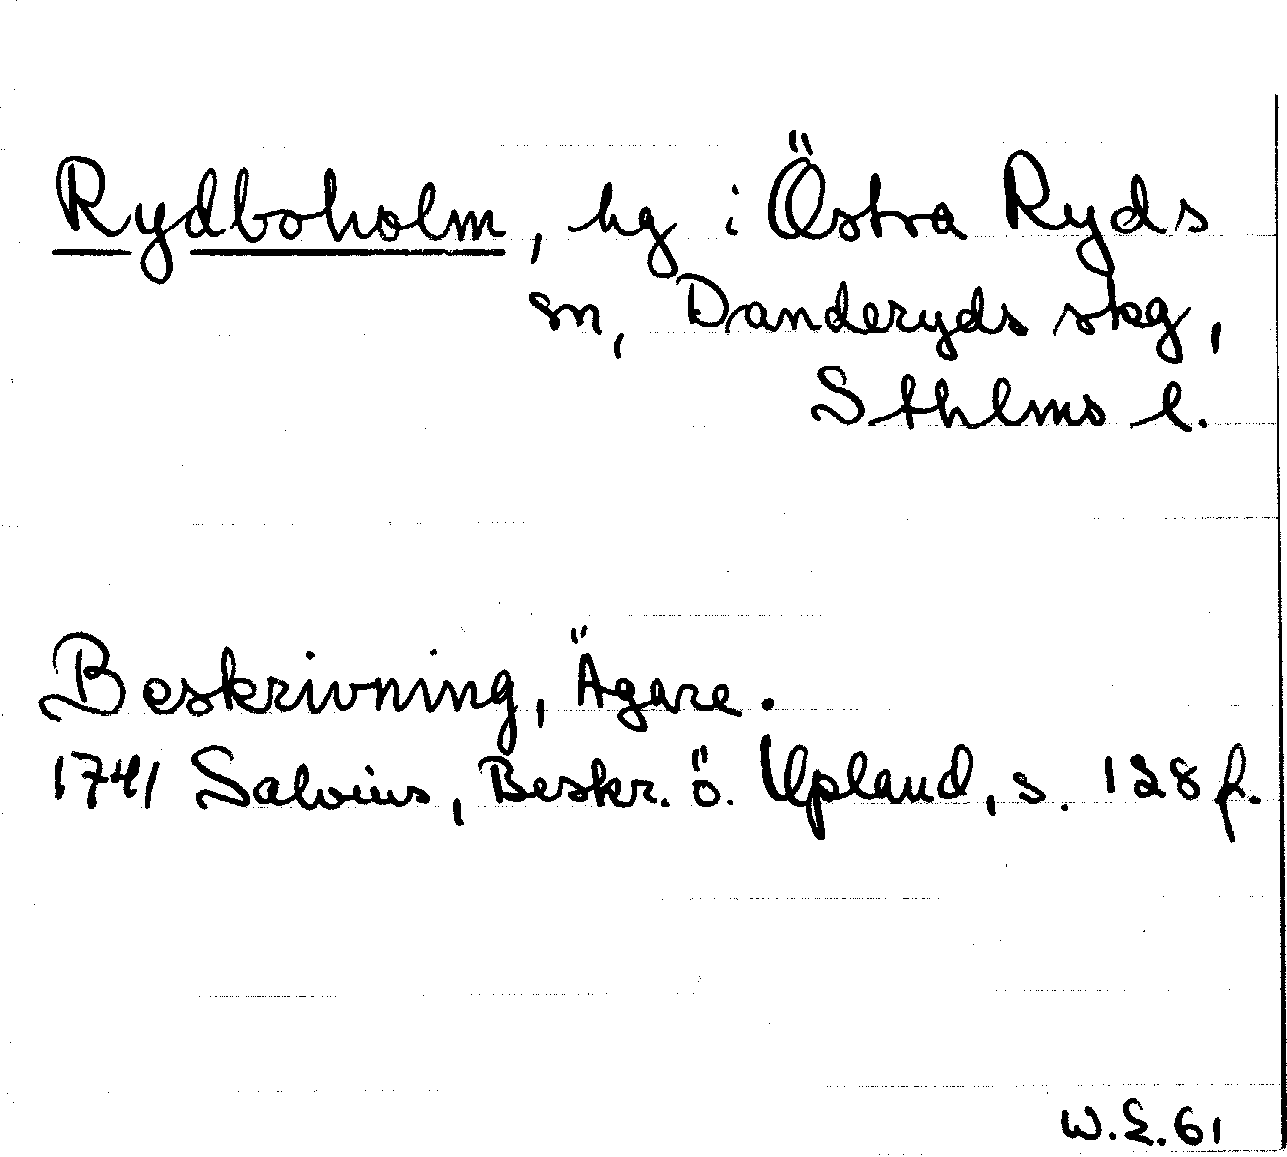 Rydboholm, hg i Östra Ryds
sn, Danderyds skg,
Sthlms l.
Beskrivning, Ägare.
1741 Salvius, Beskr. ö. Upland, s. 128 f.
W.E.61